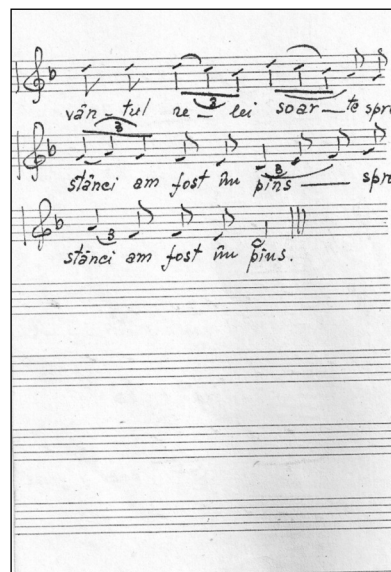 vân-tul re-lei soar-te spre
stânci am fost îm pins — spre
stânci am fost îm pins.